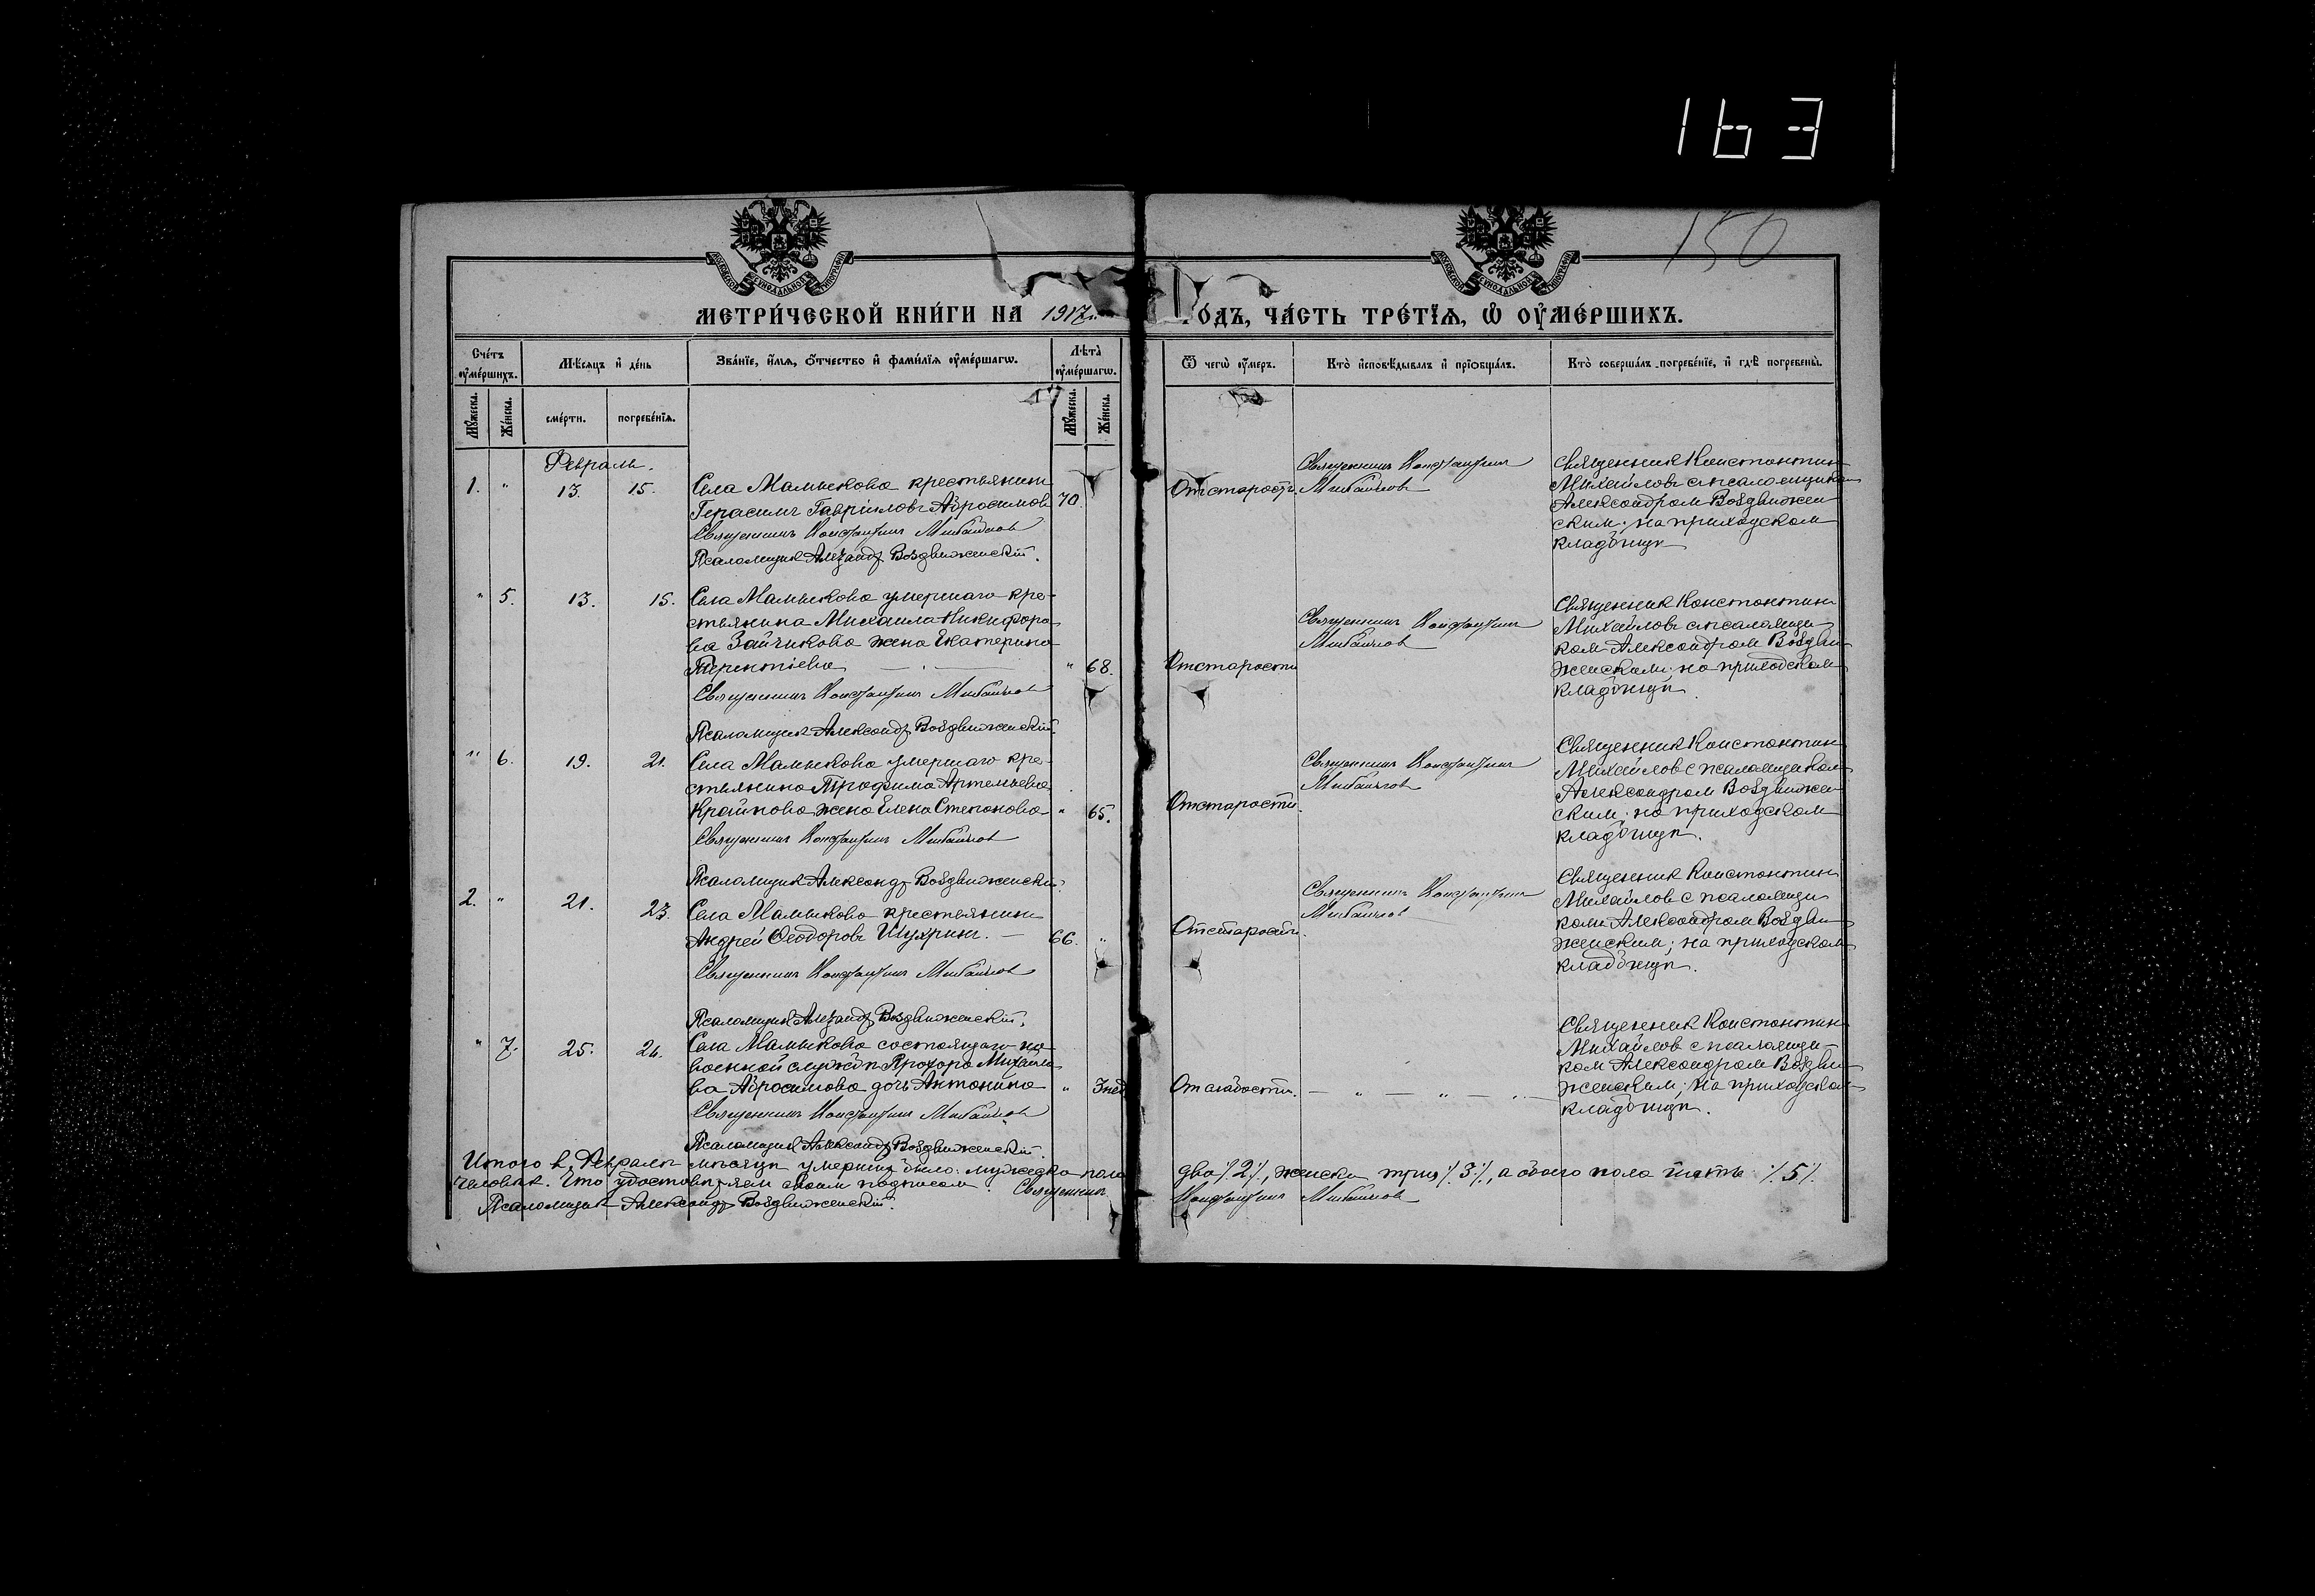 163
150
МЕТРИ́ЧЕСКОЙ КНИ́ГИ НА 1917 г.
ГОДЪ, ЧА́СТЬ ТРЕ́ТІЯ, Ѡ ОУМЕ́РШИХЪ.
Сче́тъ оуме́ршихъ.
Мѣ́сяцъ и де́нь
Зва́нїе, и́мя, ѻ́тчество и фами́лїя оуме́ршагѡ.
Лѣ́та оуме́ршагѡ.
Ѿ чегѡ̀ оу́меръ.
Кто̀ исповѣ́дывалъ и прїобща́лъ.
Кто̀ соверша́лъ погребе́нїе, и гдѣ̀ погребены̀.
Му́жеска.
Же́нска.
сме́рти.
погребе́нїя.
Му́жеска.
Же́нска.
Февраль.
1. " 13. 15. Села Мамыково крестьянинъ
Герасимъ Гавріиловъ Абросимовъ 70.
Священникъ Константинъ Михайловъ
Псаломщикъ Александръ Воздвиженскій.
Отъ старости.
Священникъ Константинъ
Михайловъ
Священникъ Константинъ
Михайловъ съ псаломщикомъ
Александромъ Воздвижен
скимъ; на приходскомъ
кладбищѣ
" 5. 13. 15. Села Мамыково умершаго кре-
стьянина Михаила Никифоро
ва Зайчикова жена Екатерина
Терентіева " 68.
Священникъ Константинъ Михайловъ
Псаломщикъ Александръ Воздвиженскій.
Отъ старости
Священникъ Константинъ
Михайловъ
Священникъ Константинъ
Михайловъ съ псаломщи
комъ Александромъ Воздви
женскимъ; на приходскомъ
кладбищѣ.
" 6. 19. 21. Села Мамыково умершаго кре-
стьянина Трофима Артемьева
Крайнова жена Елена Степанова " 65.
Священникъ Константинъ Михайловъ
Псаломщикъ Александръ Воздвиженскій.
Отъ старости.
Священникъ Константинъ
Михайловъ
Священникъ Константинъ
Михайловъ с псаломщикомъ
Александромъ Воздвижен
скимъ; на приходскомъ
кладбищѣ.
2. " 21. 23. Села Мамыково крестьянинъ
Андрей Ѳеодоровъ Шухринъ. — 66. "
Священникъ Константинъ Михайловъ
Псаломщикъ Александръ Воздвиженскій.
Отъ старости.
Священникъ Константинъ
Михайловъ
Священникъ Константинъ
Михайловъ с псаломщи
комъ Александромъ Воздви
женскимъ; на приходскомъ
кладбищѣ.
" 7. 25. 26. Села Мамыково состоящаго на
военной службѣ Прохора Михайло
ва Абросимова дочь Антонина " 3 нед
Священникъ Константинъ Михайловъ
Псаломщикъ Александръ Воздвиженскій.
От слабости. — " — " — " —
Священникъ Константинъ
Михайловъ с псаломщи-
комъ Александромъ Воздви-
женскимъ; на приходском-
кладбищѣ.
Итого в Февралѣ мѣсяцѣ умершихъ было: мужеска пола два /.2./, женска три /.3./, а обоего пола пять /.5./.
человѣкъ. Что удостовѣряемъ своимъ подписомъ. Священникъ Константинъ Михайловъ
Псаломщикъ Александръ Воздвиженскій.